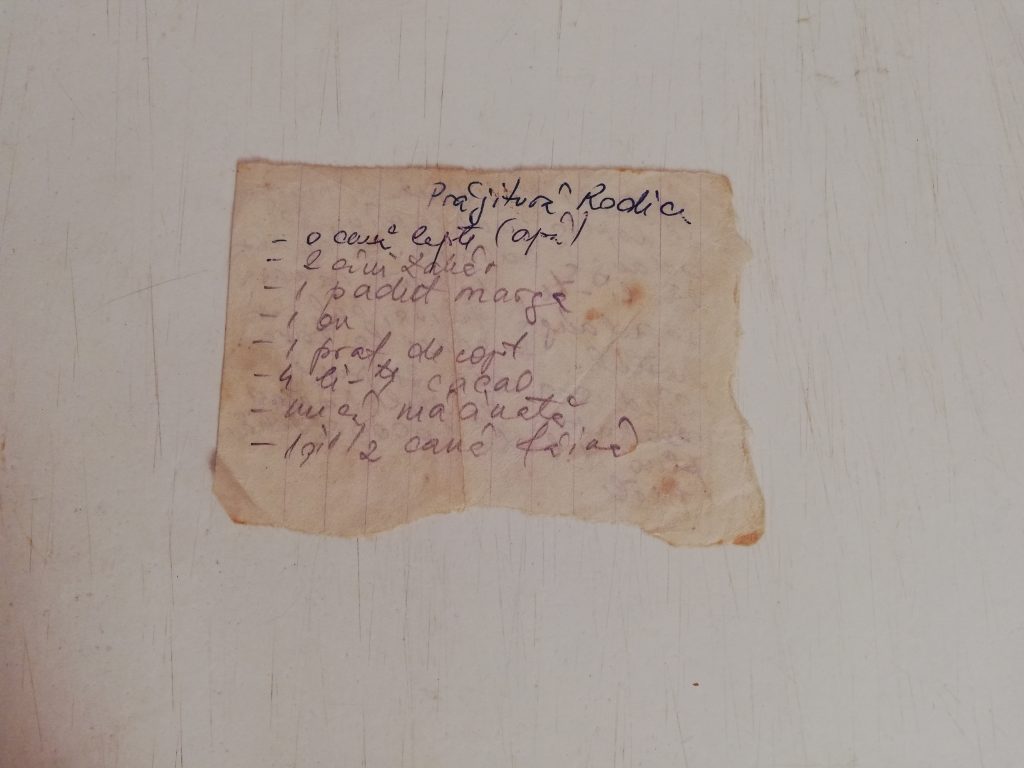 Prăjitură Rodica
- o cană lapte (apă)
- 2 căni zahăr
- 1 pachet marga
- 1 ou
- 1 praf de copt
- 4 li-țe cacao
- nucă măcinată
- 1 și 1/2 cană făină